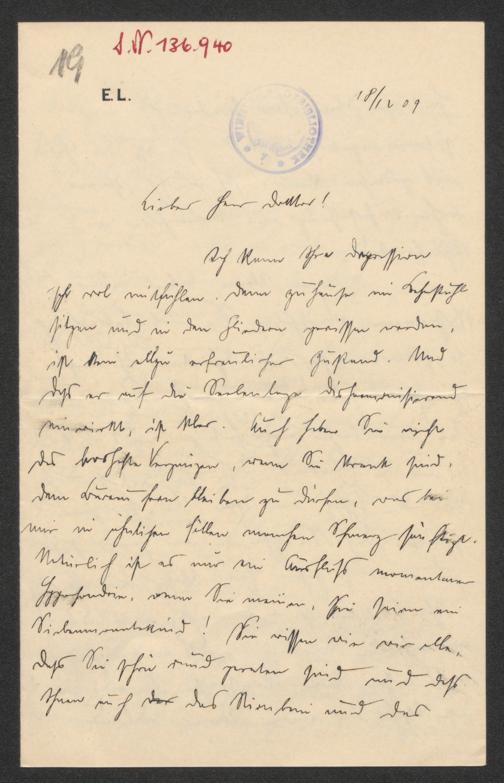 19
J.N. 136.940
E.L.
18/12 09
Lieber Herr Doktor!
Ich kann Ihre Depression
sehr wol mitfühlen. Denn zuhause im Lehnstuhl
sitzen und in den Gliedern gerissen werden,
ist kein allzu erfreulicher Zustand. Und
daß er auf die Seelenlage disharmonisierend
einwirkt, ist klar. Auch haben Sie nicht
das boshafte Vergnügen, wenn Sie krank sind,
dem Bureau fern bleiben zu dürfen, was bei
mir in ähnlichen Fällen manchen Schmerz
Natürlich ist es nur ein Ausfluß momentaner
Hypochondrie, wenn Sie meinen, Sie seien ein
Siebenmonatekind! Sie wissen wie wir alle,
daß Sie schön rund geraten sind und daß
Ihnen auch das und das